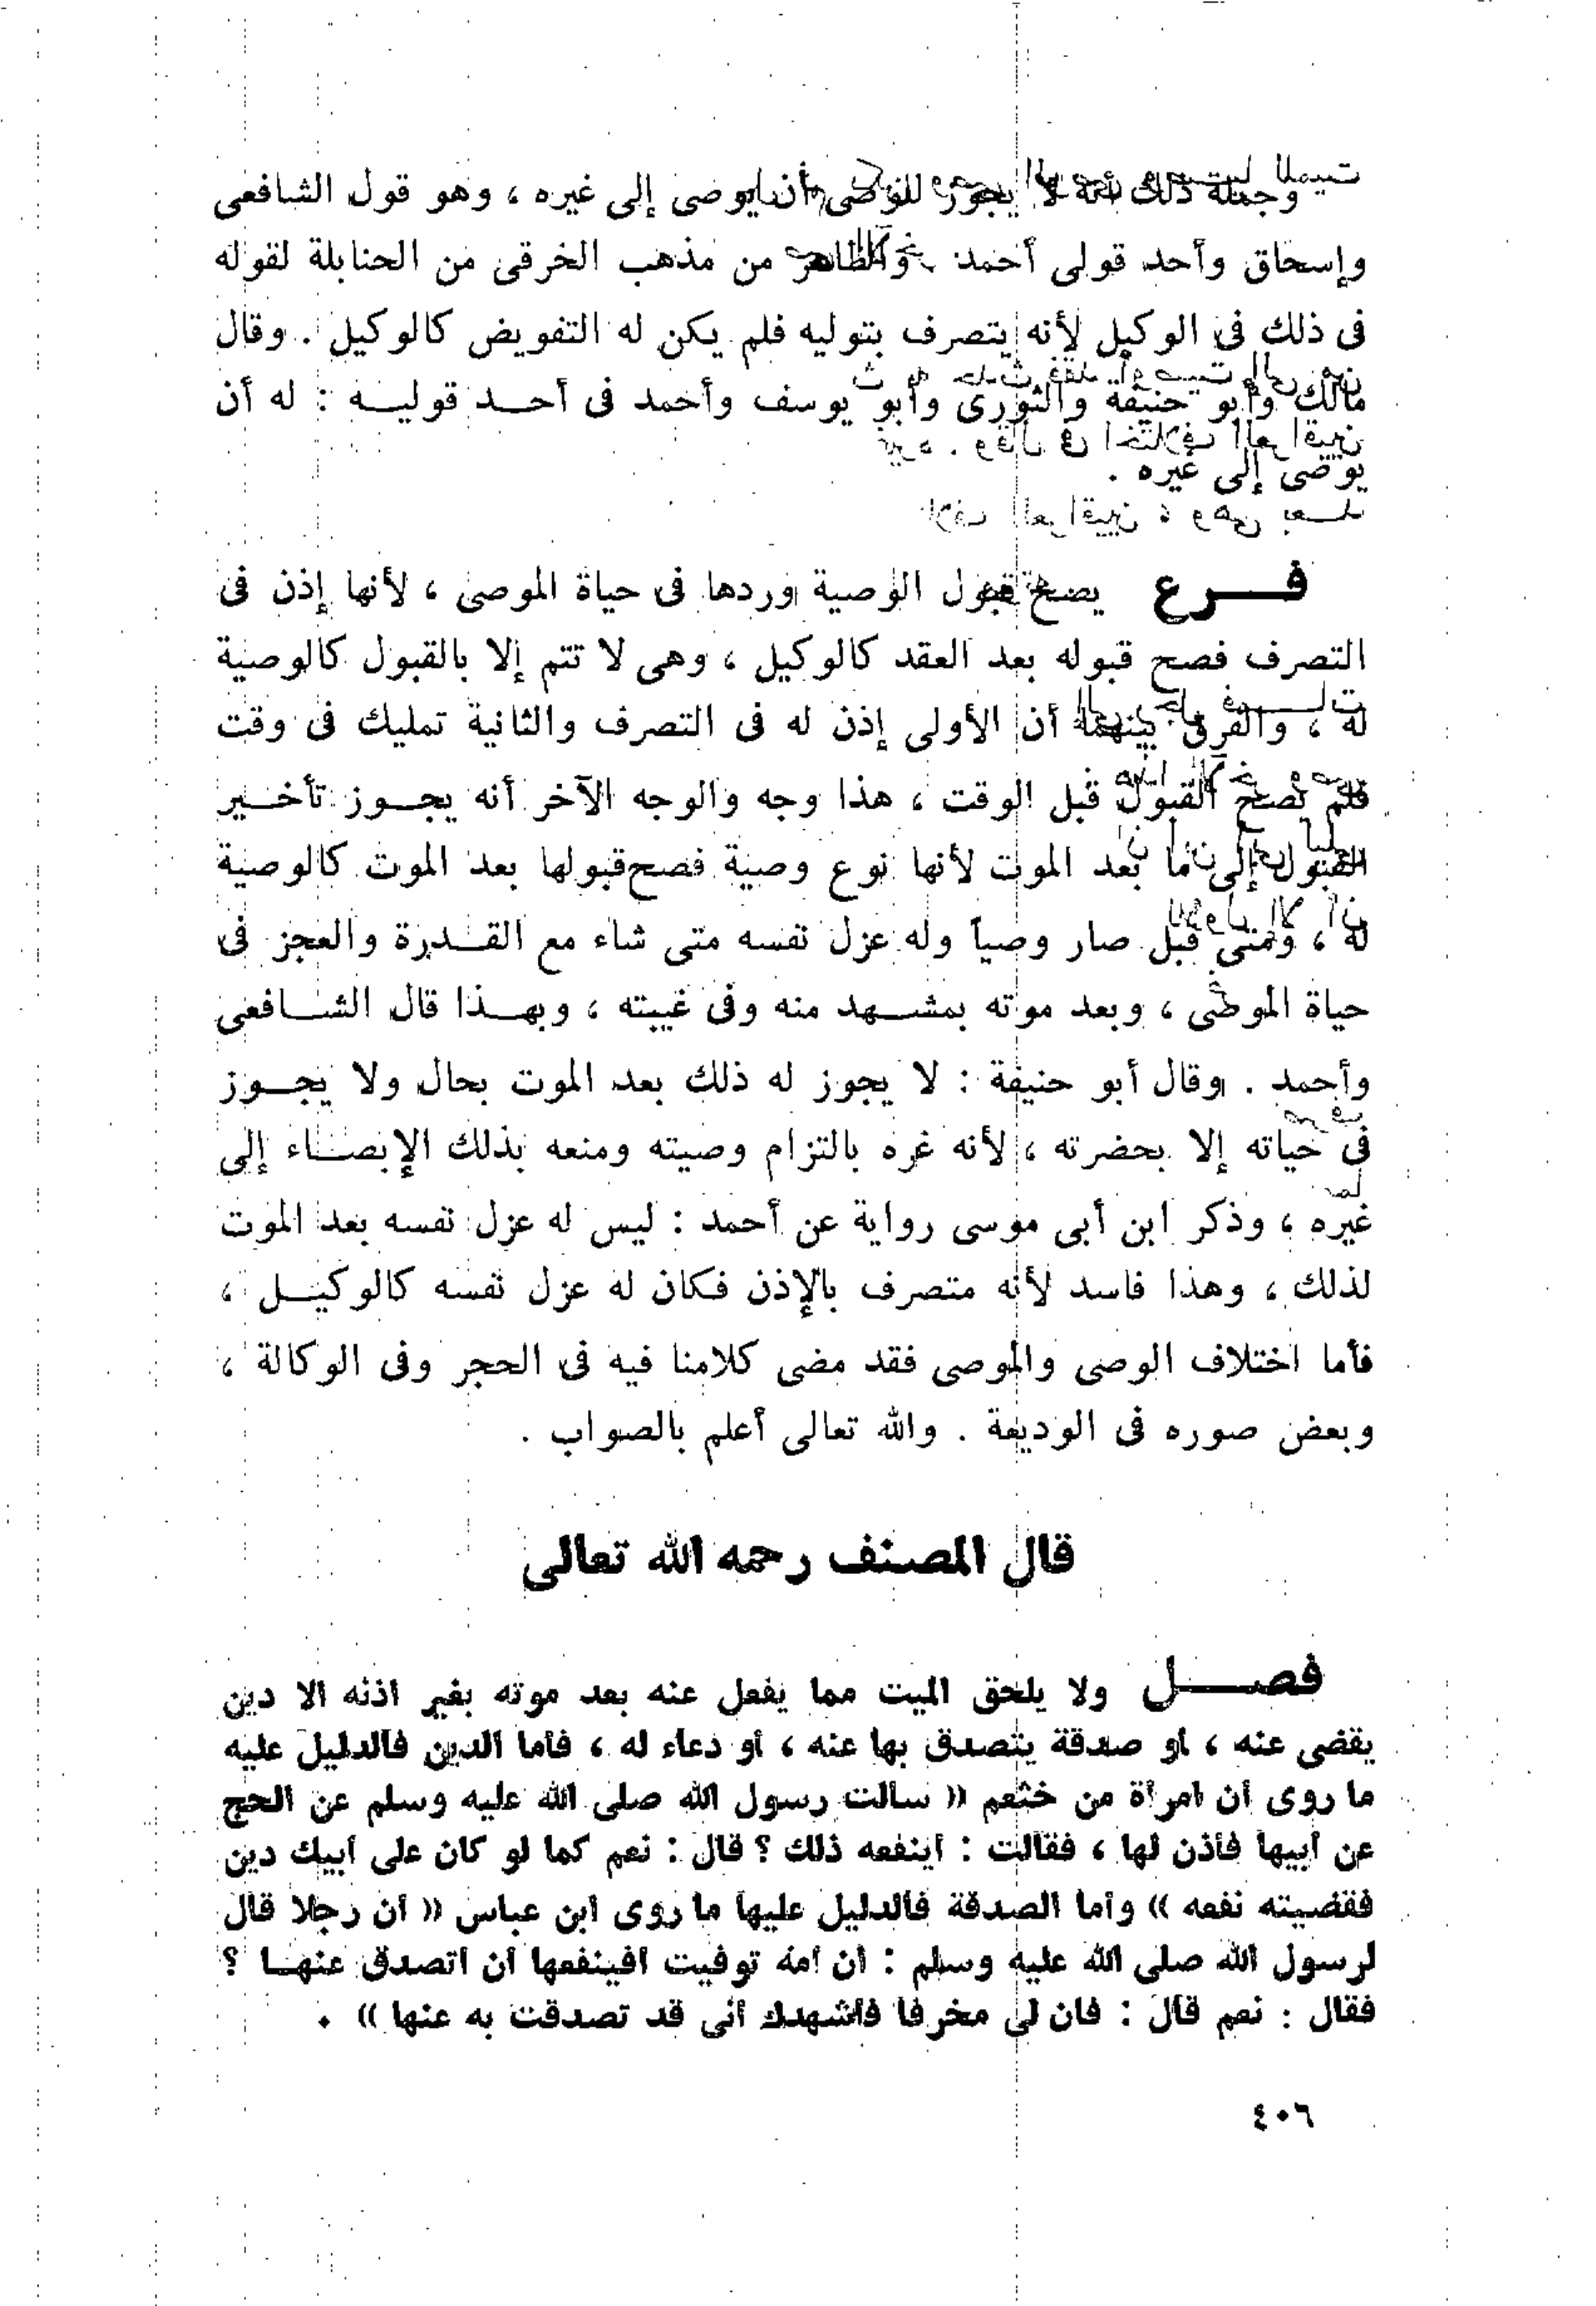 وجملة ذلك أنه لا يجوز للوصى أن يوصى إلى غيره ، وهو قول الشافعى
وإسحاق وأحد قولى أحمد . والظاهر من مذهب الخرقى من الحنابلة لقوله
فى ذلك فى الوكيل لأنه يتصرف بتوليه فلم يكن له التفويض كالوكيل . وقال
مالك وأبو حنيفة والثورى وأبو يوسف وأحمد فى أحد قوليه : له أن
يوصى إلى غيره .
فرع يصح قبول الوصية وردها فى حياة الموصى ، لأنها إذن فى
التصرف فصح قبوله بعد العقد كالوكيل ، وهى لا تتم إلا بالقبول كالوصية
له ، والفرق بينهما أن الأولى إذن له فى التصرف والثانية تمليك فى وقت
فلم يصح القبول قبل الوقت ، هذا وجه والوجه الآخر أنه يجوز تأخير
القبول إلى ما بعد الموت لأنها نوع وصية فصح قبولها بعد الموت كالوصية
له ، ومتى قبل صار وصياً وله عزل نفسه متى شاء مع القدرة والعجز فى
حياة الموصى ، وبعد موته بمشهد منه وفى غيبته ، وبهذا قال الشافعى
وأحمد . وقال أبو حنيفة : لا يجوز له ذلك بعد الموت بحال ولا يجوز
فى حياته إلا بحضرته ، لأنه غره بالتزام وصيته ومنعه بذلك الإيصاء إلى
غيره ، وذكر ابن أبى موسى رواية عن أحمد : ليس له عزل نفسه بعد الموت
لذلك ، وهذا فاسد لأنه متصرف بالإذن فكان له عزل نفسه كالوكيل ،
فأما اختلاف الوصى والموصى فقد مضى كلامنا فيه فى الحجر وفى الوكالة ،
وبعض صوره فى الوديعة . والله تعالى أعلم بالصواب .
قال المصنف رحمه الله تعالى
فصل ولا يلحق الميت مما يفعل عنه بعد موته بغير اذنه الا دين
يقضى عنه ، أو صدقة يتصدق بها عنه ، أو دعاء له ، فأما الدين فالدليل عليه
ما روى أن امرأة من خثعم « سالت رسول الله صلى الله عليه وسلم عن الحج
عن أبيها فأذن لها ، فقالت : أينفعه ذلك ؟ قال : نعم كما لو كان على أبيك دين
فقضيته نفعه » وأما الصدقة فالدليل عليها ما روى ابن عباس « أن رجلا قال
لرسول الله صلى الله عليه وسلم : أن أمه توفيت أفينفعها أن اتصدق عنها ؟
فقال : نعم قال : فان لى مخرفا فأشهدك أنى قد تصدقت به عنها » .
٤٠٦